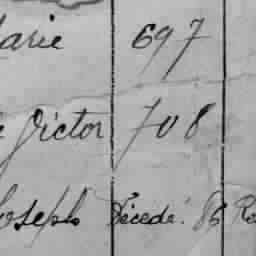 arie 697
Victor 708
Joseph Décédé. 86 Ro